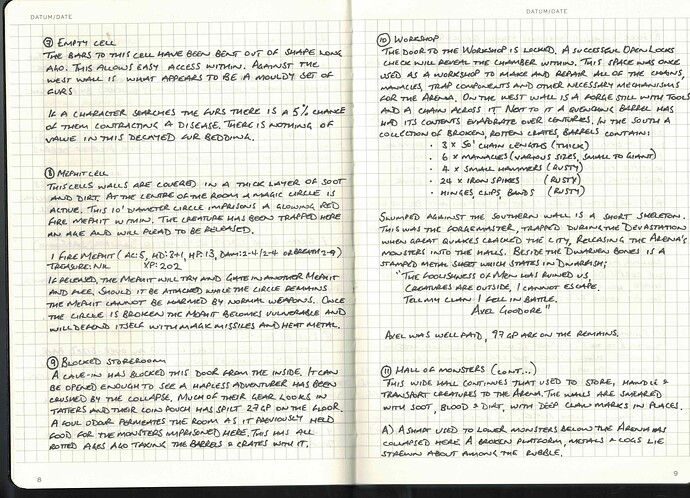 DATUM/DATE
⑦ EMPTY CELL
THE BARS TO THIS CELL HAVE BEEN BENT OUT OF SHAPE LONG
AGO. THIS ALLOWS EASY ACCESS WITHIN. AGAINST THE
WEST WALL IS WHAT APPEARS TO BE A MOULDY SET OF
FURS
IF A CHARACTER SEARCHES THE FURS THERE IS A 5% CHANCE
OF THEM CONTRACTING A DISEASE. THERE IS NOTHING OF
VALUE IN THIS DECAYED FUR BEDDING.
⑧ MEPHIT CELL
THIS CELLS WALLS ARE COVERED IN A THICK LAYER OF SOOT
AND DIRT. AT THE CENTRE OF THE ROOM A MAGIC CIRCLE IS
ACTIVE. THIS 10' DIAMETER CIRCLE IMPRISONS A GLOWING RED
FIRE MEPHIT WITHIN. THE CREATURE HAS BEEN TRAPPED HERE
AN AGE AND WILL PLEAD TO BE RELEASED.
1 FIRE MEPHIT (AC:5, HD:3+1, HP:13, DAM:2-4/2-4 OR BREATH 2-9)
TREASURE: NIL XP: 202
IF RELEASED, THE MEPHIT WILL TRY AND GATE IN ANOTHER MEPHIT
AND FLEE. SHOULD IT BE ATTACKED WHILE THE CIRCLE REMAINS
THE MEPHIT CANNOT BE HARMED BY NORMAL WEAPONS. ONCE
THE CIRCLE IS BROKEN THE MEPHIT BECOMES VULNERABLE AND
WILL DEFEND ITSELF WITH MAGIC MISSILES AND HEAT METAL.
⑨ BLOCKED STOREROOM
A CAVE-IN HAS BLOCKED THIS DOOR FROM THE INSIDE. IT CAN
BE OPENED ENOUGH TO SEE A HAPLESS ADVENTURER HAS BEEN
CRUSHED BY THE COLLAPSE. MUCH OF THEIR GEAR LOOKS IN
TATTERS AND THEIR COIN POUCH HAS SPILT 27 GP ON THE FLOOR.
A FOUL ODOUR PERMEATES THE ROOM AS IT PREVIOUSLY HELD
FOOD FOR THE MONSTERS IMPRISONED HERE. THIS HAS ALL
ROTTED AGES AGO TAKING THE BARRELS & CRATES WITH IT.
8
DATUM/DATE
⑩ WORKSHOP
THE DOOR TO THE WORKSHOP IS LOCKED. A SUCCESSFUL OPEN LOCKS
CHECK WILL REVEAL THE CHAMBER WITHIN. THIS SPACE WAS ONCE
USED AS A WORKSHOP TO MAKE AND REPAIR ALL OF THE CHAINS,
MANACLES, TRAP COMPONENTS AND OTHER NECESSARY MECHANISMS
FOR THE ARENA. ON THE WEST WALL IS A FORGE STILL WITH TOOLS
AND A CHAIN ACROSS IT. NEXT TO IT A QUENCHING BARREL HAS
HAD ITS CONTENTS EVAPORATE OVER CENTURIES. IN THE SOUTH A
COLLECTION OF BROKEN, ROTTEN CRATES, BARRELS CONTAIN:
· 3 x 50' CHAIN LENGTHS (THICK)
· 6 x MANACLES (VARIOUS SIZES, SMALL TO GIANT)
· 4 x SMALL HAMMERS (RUSTY)
· 24 x IRON SPIKES (RUSTY)
· HINGES, CLIPS, BANDS (RUSTY)
SLUMPED AGAINST THE SOUTHERN WALL IS A SHORT SKELETON.
THIS WAS THE FORGEMASTER, TRAPPED DURING THE DEVASTATION
WHEN GREAT QUAKES CRACKED THE CITY, RELEASING THE ARENA'S
MONSTERS INTO THE HALLS. BESIDE THE DWARVEN BONES IS A
STAMPED METAL SHEET WHICH STATES IN DWARVISH;
"THE FOOLISHNESS OF MEN HAS RUINED US.
CREATURES ARE OUTSIDE, I CANNOT ESCAPE.
TELL MY CLAN I FELL IN BATTLE.
AVEL GOODORE"
AVEL WAS WELL PAID, 97 GP ARE ON THE REMAINS.
⑪ HALL OF MONSTERS (CONT...)
THIS WIDE HALL CONTINUES THAT USED TO STORE, HANDLE &
TRANSPORT CREATURES TO THE ARENA. THE WALLS ARE SMEARED
WITH SOOT, BLOOD & DIRT, WITH DEEP CLAW MARKS IN PLACES.
A) A SHAFT USED TO LOWER MONSTERS BELOW THE ARENA HAS
COLLAPSED HERE. A BROKEN PLATFORM, METALS & LOGS LIE
STREWN ABOUT AMONG THE RUBBLE.
9